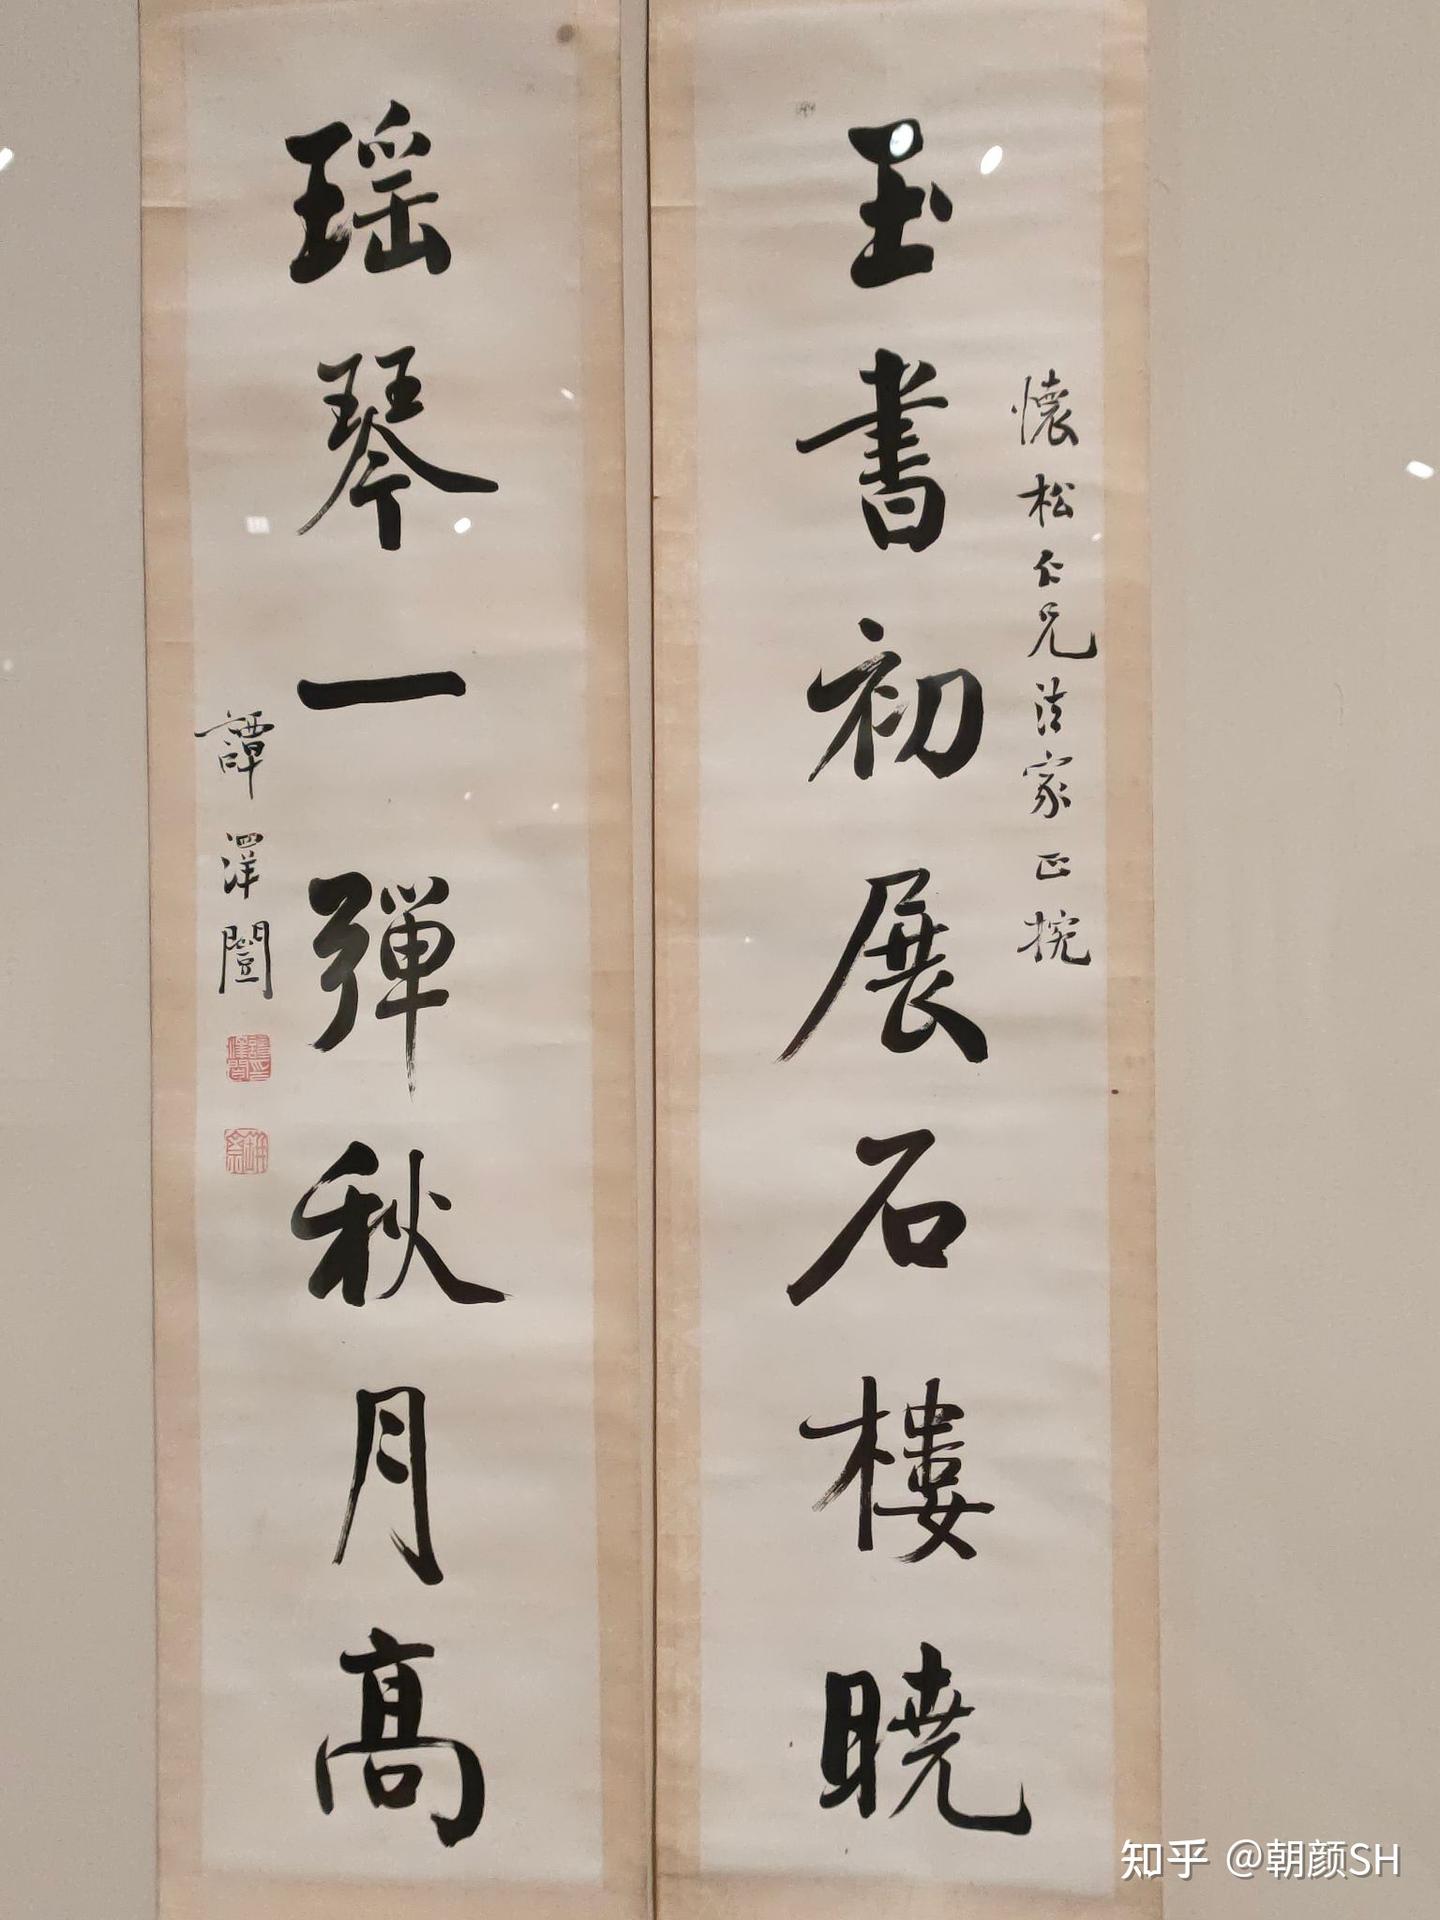 玉書初展石樓曉
懷松仁兄法家正捥
瑶琴一彈秋月高
譚澤闓
知乎 @朝颜SH